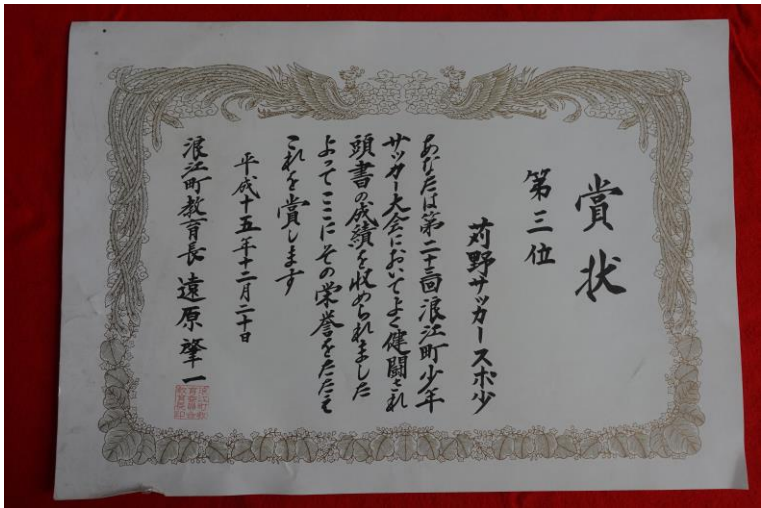 賞状
第三位
苅野サッカースポ少
あなたは第二十三回浪江町少年
サッカー大会においてよく健闘され
頭書の成績を収められました
よってここにその栄誉をたたえ
これを賞します
平成十五年十二月二十日
浪江町教育長 遠原肇一